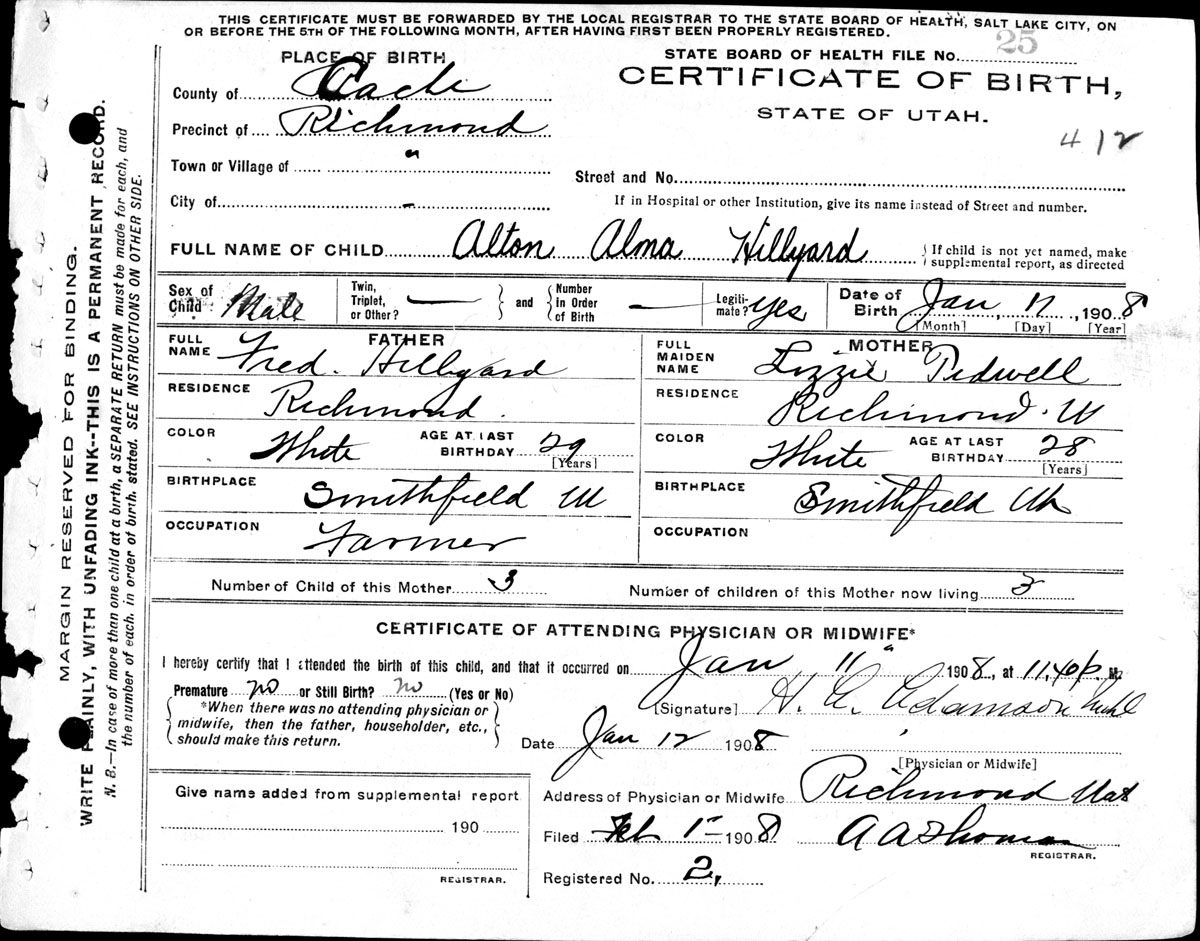 THIS CERTIFICATE MUST BE FORWARDED BY THE LOCAL REGISTRAR TO THE STATE BOARD OF HEALTH, SALT LAKE CITY, ON
OR BEFORE THE 5TH OF THE FOLLOWING MONTH, AFTER HAVING FIRST BEEN PROPERLY REGISTERED.
PLACE OF BIRTH
STATE BOARD OF HEALTH FILE No. 25
CERTIFICATE OF BIRTH,
STATE OF UTAH.
412
County of Cache
Precinct of Richmond
Town or Village of "
Street and No.
City of -
If in Hospital or other Institution, give its name instead of Street and number.
FULL NAME OF CHILD Alton Alma Hillyard {If child is not yet named, make
supplemental report, as directed
Sex of Child Male
Twin, Triplet, or Other? — and Number In Order of Birth —
Legitimate? Yes
Date of Birth Jan, 11, 1908
[Month] [Day] [Year]
FATHER
FULL NAME Fred. Hillyard
RESIDENCE Richmond.
COLOR White AGE AT LAST BIRTHDAY 29
[Years]
BIRTHPLACE Smithfield U
OCCUPATION Farmer
MOTHER
FULL MAIDEN NAME Lizzie Tidwell
RESIDENCE Richmond. U
COLOR White AGE AT LAST BIRTHDAY 28
[Years]
BIRTHPLACE Smithfield Uh
OCCUPATION
Number of Child of this Mother 3
Number of children of this Mother now living 3
CERTIFICATE OF ATTENDING PHYSICIAN OR MIDWIFE*
I hereby certify that I attended the birth of this child, and that it occurred on Jan 11" 1908, at 11,40 p. M.
Premature no or Still Birth? no (Yes or No)
{*When there was no attending physician or
midwife, then the father, householder, etc.,
should make this return.}
[Signature] H. E. Adamson
Date Jan 12 1908
[Physician or Midwife]
Address of Physician or Midwife Richmond Utah
Give name added from supplemental report
190
REGISTRAR.
Filed Feb 1- 1908 A A Thomas
REGISTRAR.
Registered No. 2,
MARGIN RESERVED FOR BINDING.
WRITE PLAINLY, WITH UNFADING INK--THIS IS A PERMANENT RECORD.
N. B.—In case of more than one child at a birth, a SEPARATE RETURN must be made for each, and
the number of each, in order of birth, stated. SEE INSTRUCTIONS ON OTHER SIDE.